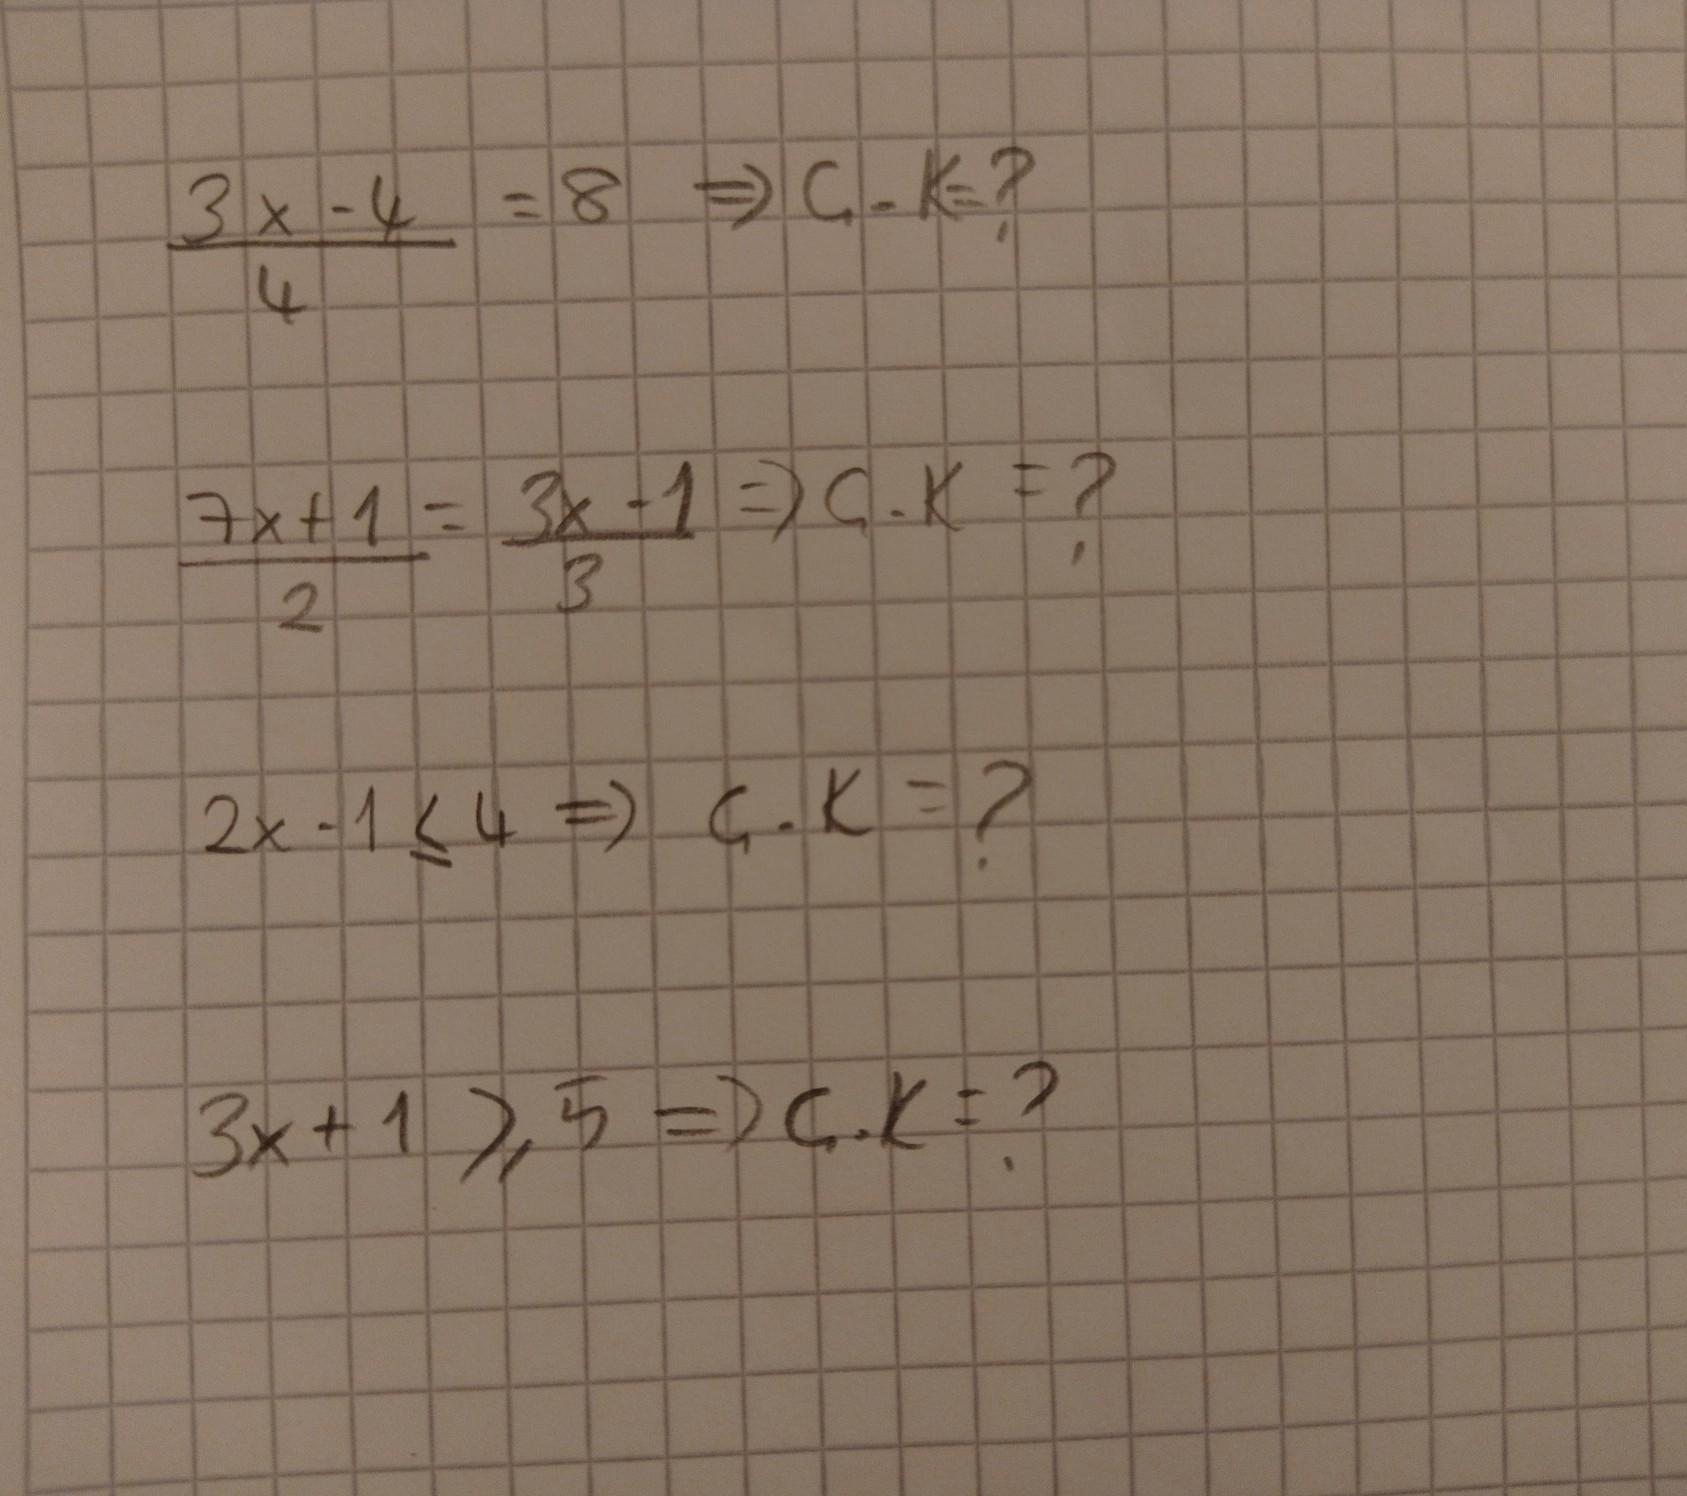 3x-4/4 = 8 ⇒ Ç.K=?
7x+1/2 = 3x-1/3 ⇒ Ç.K=?
2x-1≤4 ⇒ Ç.K=?
3x+1⩾5 ⇒ Ç.K=?